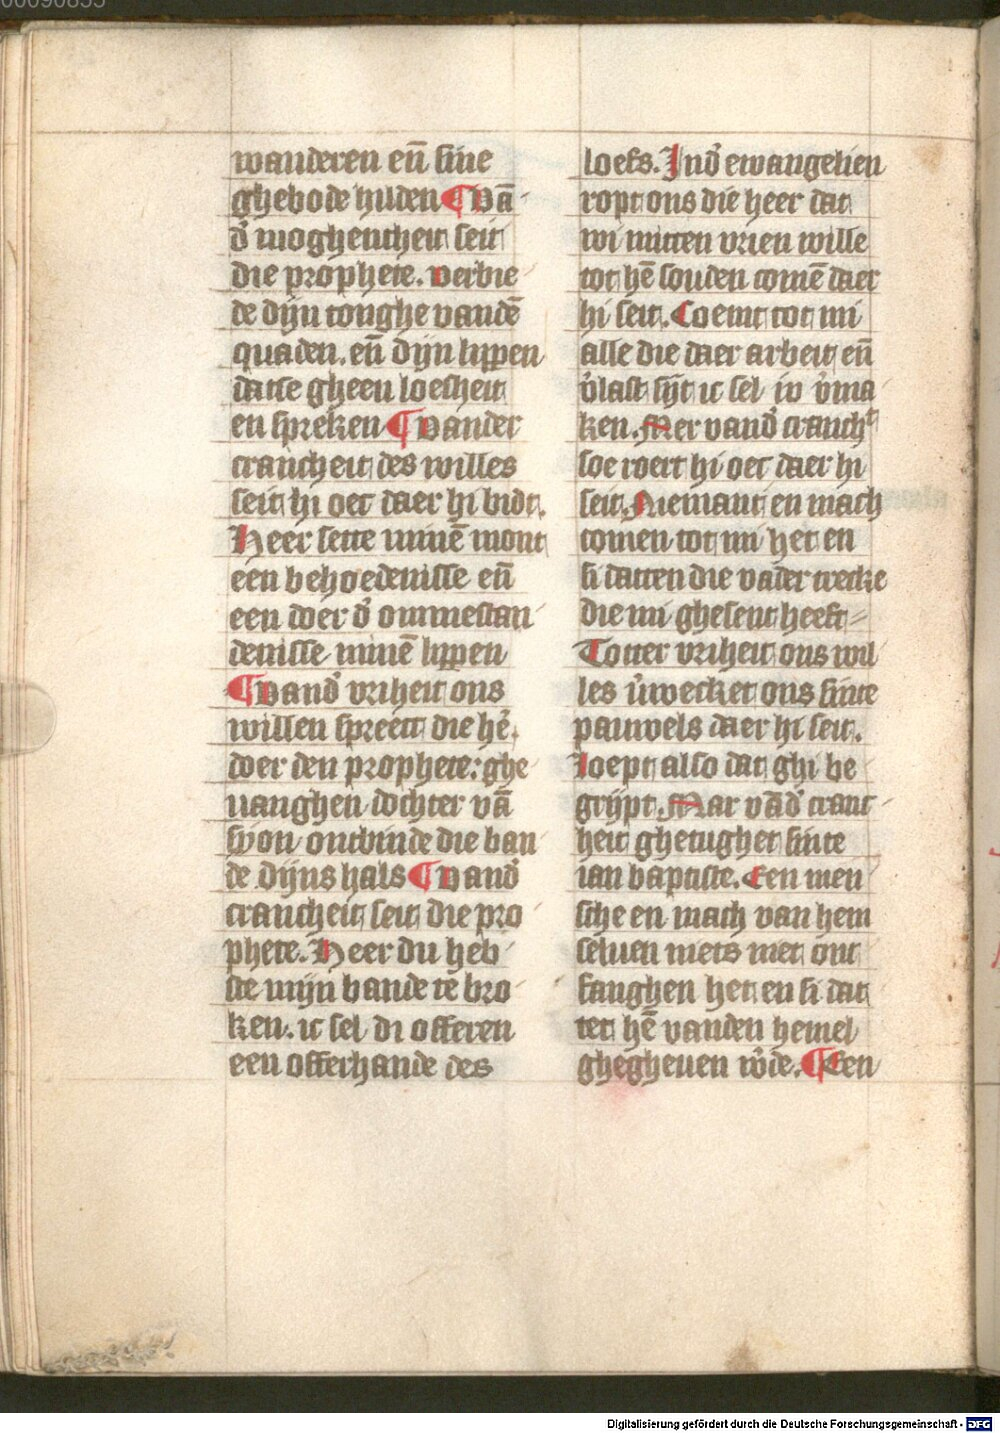 00090855
wanderen en̄ sine
ghebode hilden ¶ Vā
d̕ moghentheit seit
die prophete. verbie
de dijn tonghe vandē
quaden. en̄ dijn lippen
datse gheen loesheit
en spreken ¶ vander
crancheit des willes
seit hi oec daer hi bidt.
Heer sette minē mont
een behoedenisse en̄
een doer d̕ ommestan
denisse minē lippen
¶ Vand̕ vriheit ons
willen spreect die he̕.
doer den prophete: ghe
uanghen dochter vā
syon ontbinde die ban
de dijns hals ¶ Vand̕
crancheit seit die pro
phete. Heer du heb
ste mijn bande te bro
ken. ic sel di offeren
een offerhande des
loefs. Ind̕ ewangelien
ropt ons die heer dat
wi mitten vrien wille
tot hē souden comē daer
hi seit. Coemt tot mi
alle die daer arbeit en̄
v̕last sijt ic sel iv v̕ma
ken. Mer vand̕ cranchᵗ
soe roert hi oec daer hi
seit. Niemant en mach
comen tot mi het en
si datten die vader trecke
die mi ghesent heeft
Totter vriheit ons wil
les v̕wecket ons sinte
pauwels daer hi seit.
Loept also dat ghi be
grijpt. Mar vād̕ cranc
heit ghetughet sinte
ian baptiste. Een men
sche en mach van hem
seluen niets niet ont
fanghen het en si dat
tet hē vanden hemel
ghegheuen w̕de. ¶ Een
Digitalisierung gefördert durch die Deutsche Forschungsgemeinschaft - DFG